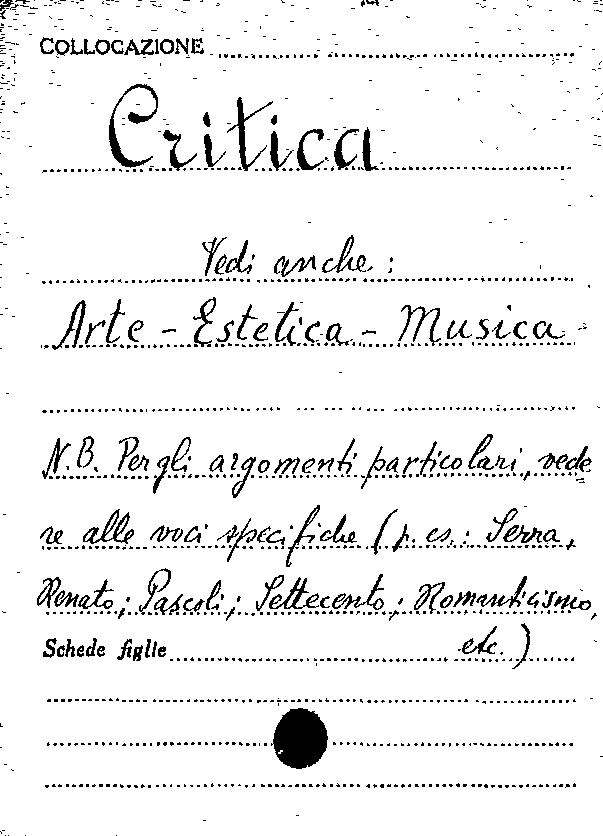 COLLOCAZIONE
Critica
Vedi anche:
Arte - Estetica - Musica -
N.B. Per gli argomenti particolari, vede=
re alle voci specifiche (p. es.: Serra,
Renato; Pascoli; Settecento; Romanticismo,
etc.)
Schede figlie